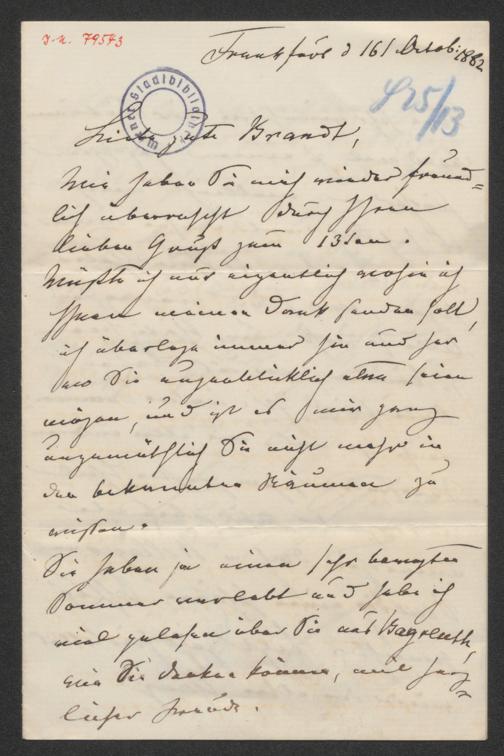 J.N. 79573
Frankfurt d 16/ Octob: 1882
625/13
Wiener Stadtbibliothek
Liebe gute Brandt,
Wie haben Sie mich wieder freund=
lich überrascht durch Ihren
lieben Gruß zum 13ten.
Wüßte ich nur eigentlich wohin ich
Ihnen meinen Dank senden soll,
ich überlege immer hin und her
wo Sie augenblicklich etwa sein
mögen, und ist es mir ganz
ungemüthlich Sie nicht mehr in
den bekannten Räumen zu
wissen.
Sie haben ja einen sehr bewegten
Sommer verlebt und habe ich
viel gelesen über Sie aus Bayreuth,
wie Sie denken können, mit herz=
licher Freude.